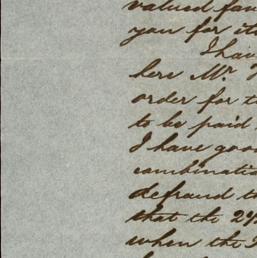 valued fav
you for it
I hav
here Mr.
order for t
to be paid
I have goo
combinatio
defraud t
that the 2
when the